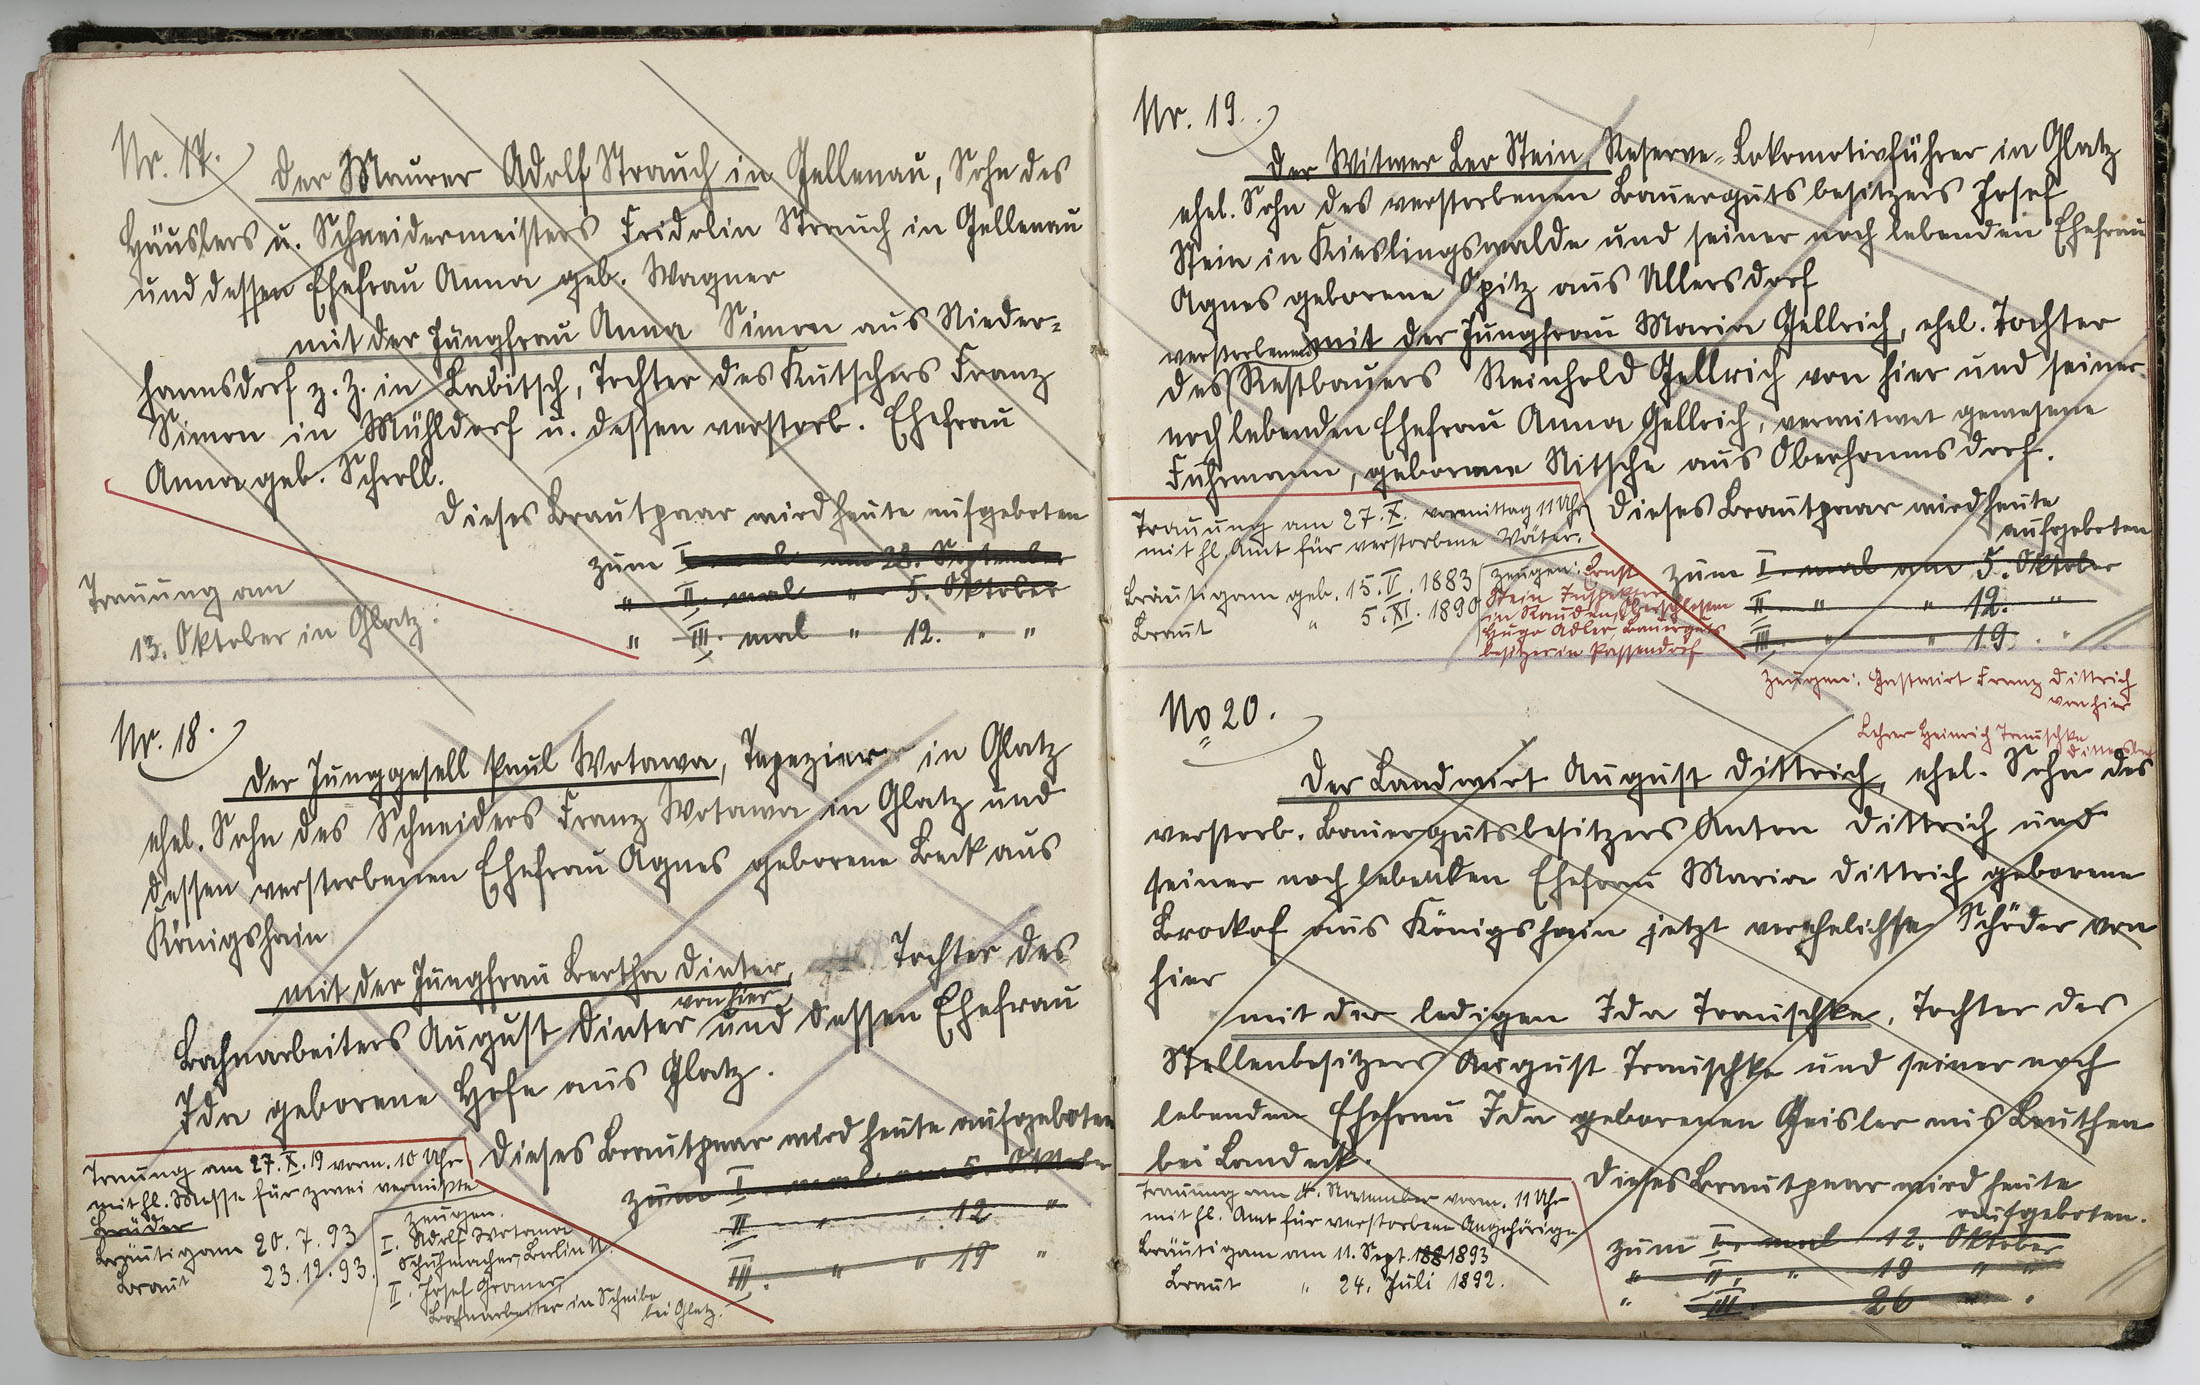 Nr. 17.
Der Maurer Adolf Strauch in Gellenau, Sohn des
Häuslers u. Schneidermeisters Fridolin Strauch in Gellenau
und dessen Ehefrau Anna geb. Wagner
mit der Jungfrau Anna Simon aus Nieder-
hannsdorf z. Z. in Labitsch, Tochter des Kutschers Franz
Simon in Mühldorf u. dessen verstorb. Ehefrau
Anna geb. Scholl.
Dieses Brautpaar wird heute aufgeboten
zum I mal am 28. September
" II. mal " 5. Oktober
" III. mal " 12. " "
Trauung am
13. Oktober in Glatz.
Nr. 18.
Der Junggesell Paul Wotawa, Tapezier in Glatz
ehel. Sohn des Schneiders Franz Wotawa in Glatz und
dessen verstorbenen Ehefrau Agnes geborene Beck aus
Königshain
mit der Jungfrau Bertha Dinter, Tochter des
von hier
Bahnarbeiters August Dinter und dessen Ehefrau
Ida geborene Hofe aus Glatz.
Dieses Brautpaar wird heute aufgeboten
zum I. mal am 5. Oktober
II " " 12 "
III. " " 19 "
Trauung am 27. X. 19 vorm. 10 Uhr
mit hl. Messe für zwei vermißte
Brüder
Bräutigam 20. 7. 93
Braut 23. 12. 93.
Zeugen.
I. Adolf Wotawa
Schuhmacher, Berlin N.
II. Josef Gramer,
Bahnarbeiter in Scheibe
bei Glatz.
Nr. 19.
Der Witwer Leo Stein, Reserve-Lokomotivführer in Glatz
ehel. Sohn des verstorbenen Bauergutsbesitzers Josef
Stein in Kieslingswalde und seiner noch lebenden Ehefrau
Agnes geborene Opitz aus Ullersdorf
mit der Jungfrau Maria Gellrich, ehel. Tochter
verstorbenen
des Restbauers Reinhold Gellrich von hier und seiner
noch lebenden Ehefrau Anna Gellrich, verwitwet gewesene
Fuhrmann, geborene Nitsche aus Oberhannsdorf.
Dieses Brautpaar wird heute
aufgeboten
zum I. mal am 5. Oktober
II. " " 12. "
III. " " 19. "
Trauung am 27. X. vormittag 11 Uhr
mit hl. Amt für verstorbene Väter.
Bräutigam geb. 15. V. 1883
Braut " 5. XI. 1890
Zeugen: Ernst
Stein Inspektor
in Rauden, Oberschlesien
Hugo Adler, Bauerguts
besitzer in Passendorf
Zeugen: Gastwirt Franz Dittrich
von hier
Lehrer Heinrich Trauschke
No 20.
Der Landwirt August Dittrich, ehel. Sohn des
verstorb. Bauergutsbesitzers Anton Dittrich und
seiner noch lebenden Ehefrau Maria Dittrich geborene
Brockof aus Königshain jetzt verehelichte Schöder von
hier
mit der ledigen Ida Trauschke, Tochter des
Stellenbesitzers August Trauschke und seiner noch
lebenden Ehefrau Ida geborenen Geisler aus Leuthen
bei Landeck.
Dieses Brautpaar wird heute
aufgeboten.
zum I. mal 12. Oktober
" II. " 19 " "
" III. 26 " "
Trauung am 4. November vorm. 11 Uhr
mit hl. Amt für verstorbene Angehörige
Bräutigam am 11. Sept. 1893
Braut " 24. Juli 1892.